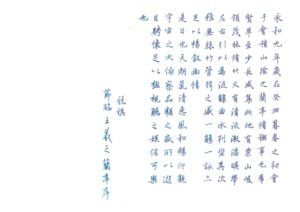 永和九年歲在癸丑暮春之初會
于會稽山陰之蘭亭脩禊事也羣
賢畢至少長咸集此地有崇山峻
領茂林脩竹又有清流激湍映帶
左右引以為流觴曲水列坐其次
雖無絲竹管絃之盛一觴一詠亦
足以暢敘幽情
是日也天朗氣清惠風和暢仰觀
宇宙之大俯察品類之盛所以遊
目騁懷足以極視聽之娛信可樂
也
節臨王羲之蘭亭序